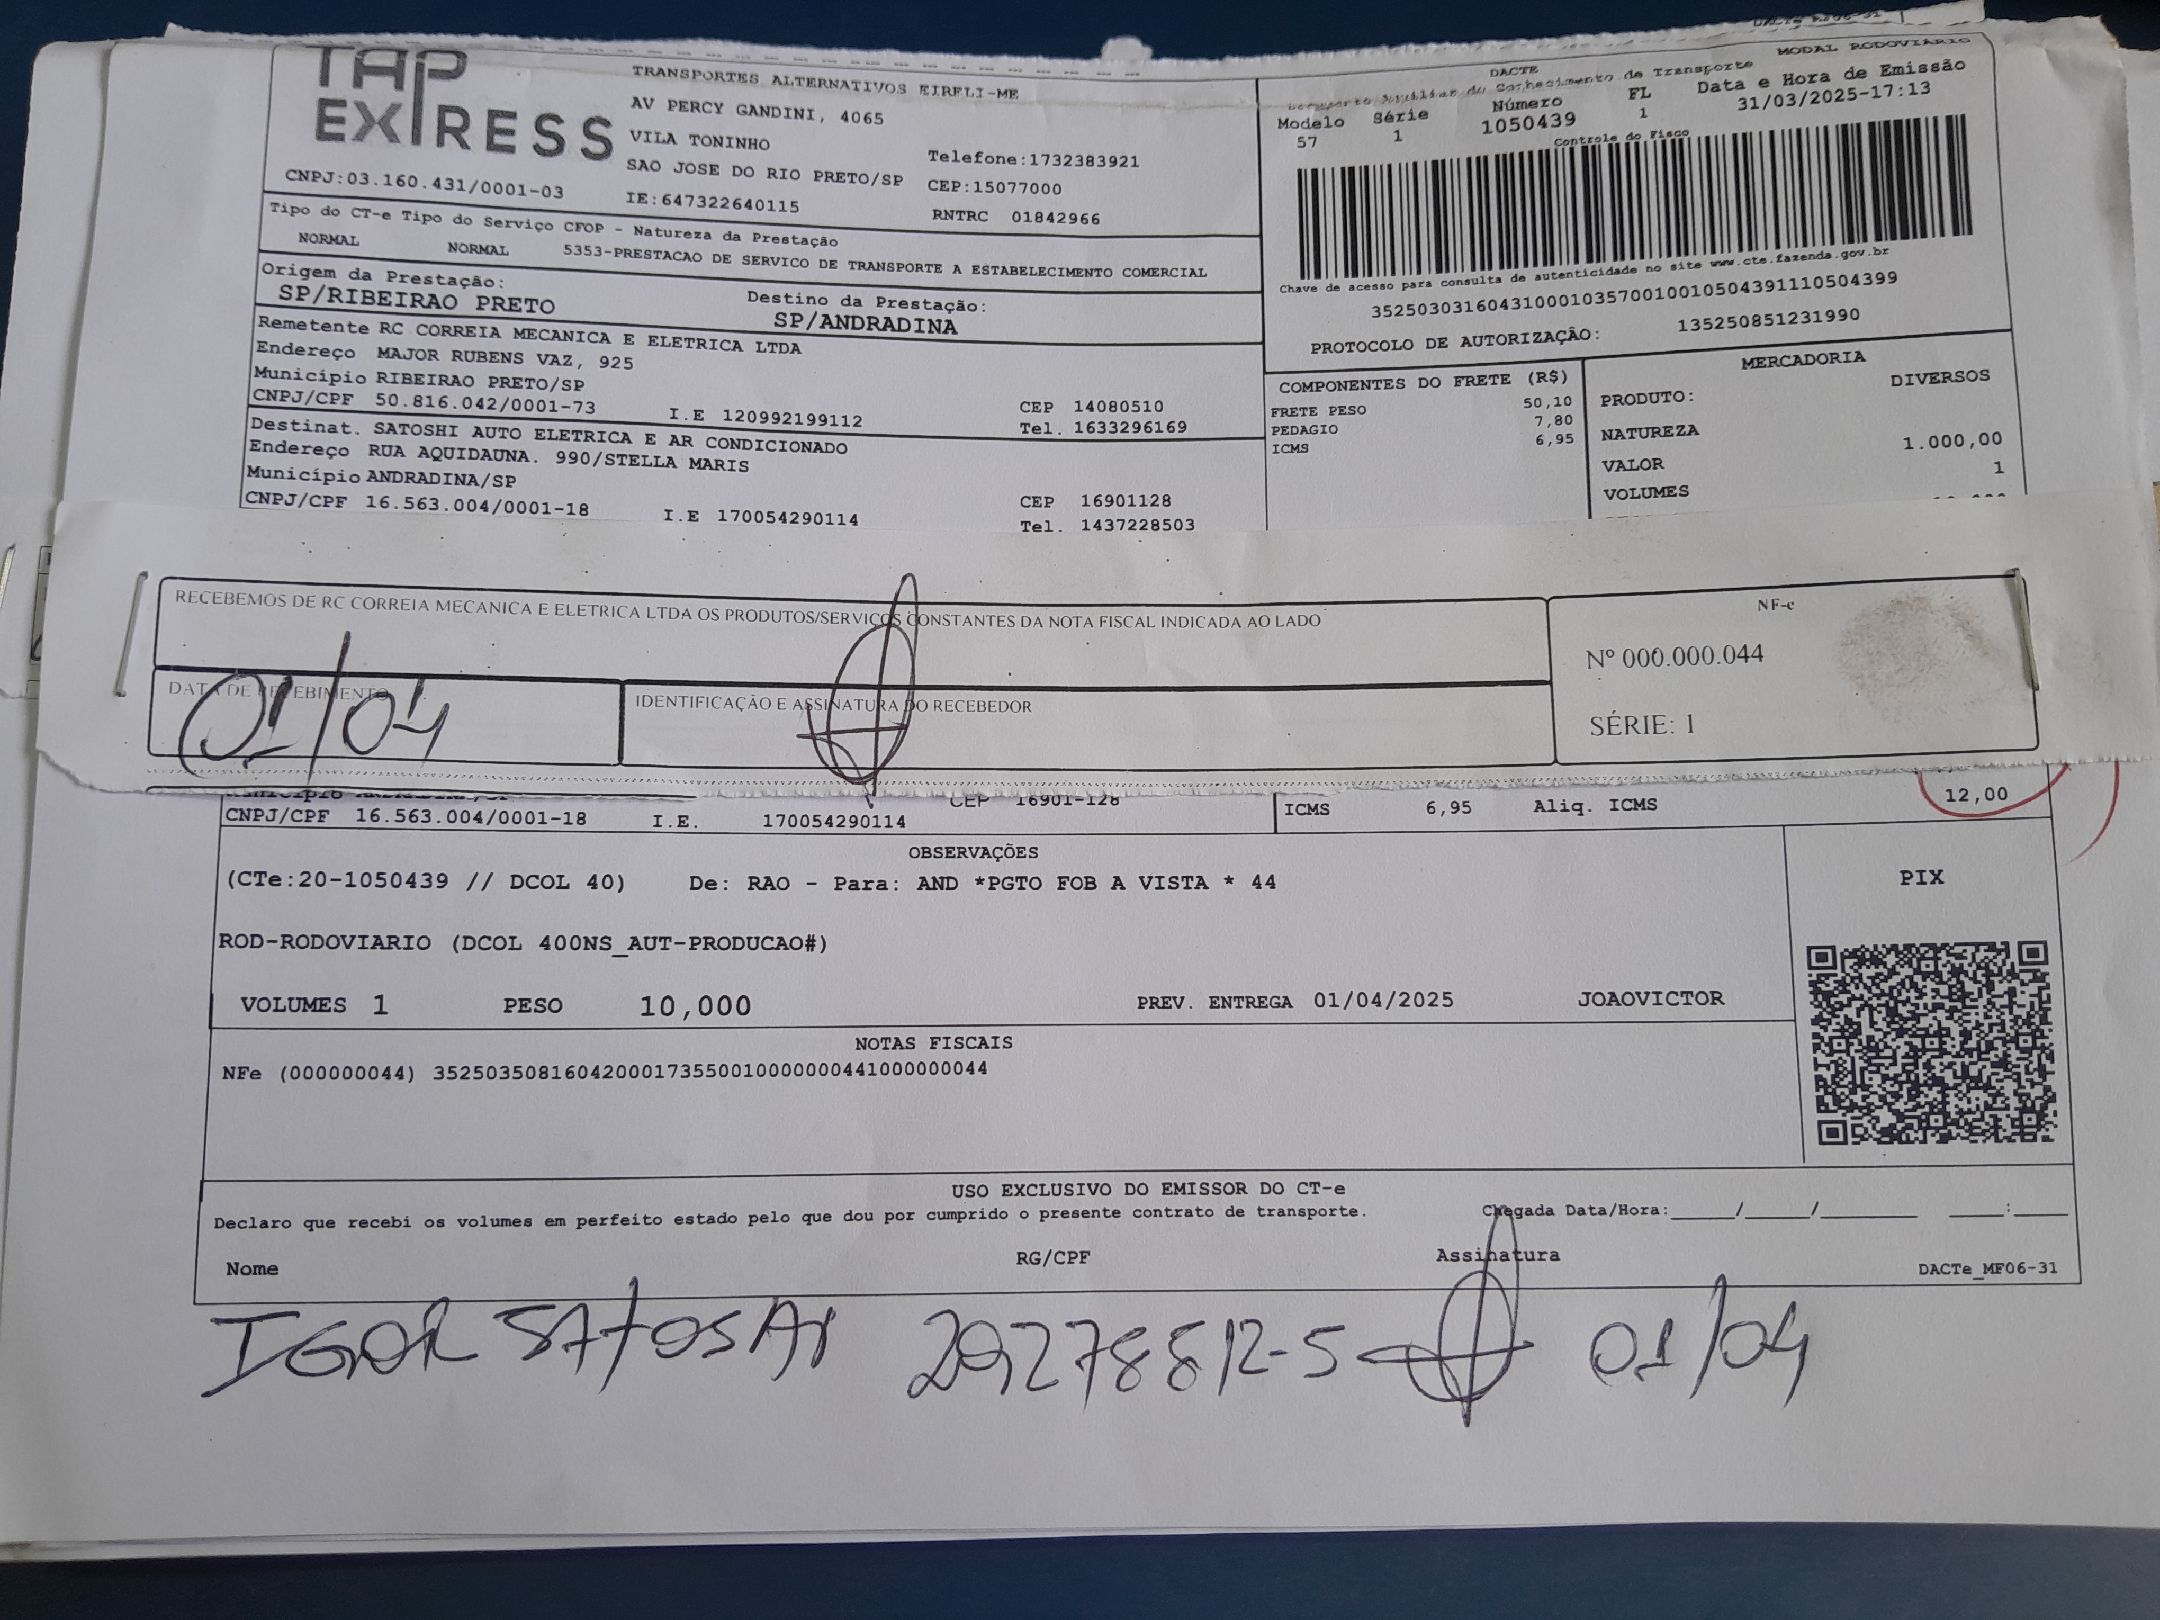 DACTe MF06-31
TAP EXPRESS
TRANSPORTES ALTERNATIVOS EIRELI-ME
AV PERCY GANDINI, 4065
VILA TONINHO
SAO JOSE DO RIO PRETO/SP
Telefone:1732383921
CEP:15077000
CNPJ:03.160.431/0001-03
IE:647322640115
RNTRC 01842966
DACTE
MODAL RODOVIÁRIO
Documento Auxiliar do Conhecimento de Transporte
Modelo Série Número FL Data e Hora de Emissão
57 1 1050439 1 31/03/2025-17:13
Controle do Fisco
Chave de acesso para consulta de autenticidade no site www.cte.fazenda.gov.br
35250303160431000103570010010504391110504399
PROTOCOLO DE AUTORIZAÇÃO: 135250851231990
Tipo do CT-e Tipo do Serviço CFOP - Natureza da Prestação
NORMAL NORMAL 5353-PRESTACAO DE SERVICO DE TRANSPORTE A ESTABELECIMENTO COMERCIAL
Origem da Prestação: Destino da Prestação:
SP/RIBEIRAO PRETO SP/ANDRADINA
Remetente RC CORREIA MECANICA E ELETRICA LTDA
Endereço MAJOR RUBENS VAZ, 925
Município RIBEIRAO PRETO/SP CEP 14080510
CNPJ/CPF 50.816.042/0001-73 I.E 120992199112 Tel. 1633296169
Destinat. SATOSHI AUTO ELETRICA E AR CONDICIONADO
Endereço RUA AQUIDAUNA. 990/STELLA MARIS
Município ANDRADINA/SP CEP 16901128
CNPJ/CPF 16.563.004/0001-18 I.E 170054290114 Tel. 1437228503
COMPONENTES DO FRETE (R$)
FRETE PESO 50,10
PEDAGIO 7,80
ICMS 6,95
MERCADORIA
PRODUTO: DIVERSOS
NATUREZA
VALOR 1.000,00
VOLUMES 1
RECEBEMOS DE RC CORREIA MECANICA E ELETRICA LTDA OS PRODUTOS/SERVIÇOS CONSTANTES DA NOTA FISCAL INDICADA AO LADO
DATA DE RECEBIMENTO
01/04
IDENTIFICAÇÃO E ASSINATURA DO RECEBEDOR
NF-e
Nº 000.000.044
SÉRIE: 1
CEP 16901-128
CNPJ/CPF 16.563.004/0001-18 I.E. 170054290114
ICMS 6,95 Aliq. ICMS 12,00
OBSERVAÇÕES
(CTe:20-1050439 // DCOL 40) De: RAO - Para: AND *PGTO FOB A VISTA * 44
ROD-RODOVIARIO (DCOL 400NS_AUT-PRODUCAO#)
VOLUMES 1 PESO 10,000 PREV. ENTREGA 01/04/2025 JOAOVICTOR
PIX
NOTAS FISCAIS
NFe (000000044) 35250350816042000173550010000000441000000044
USO EXCLUSIVO DO EMISSOR DO CT-e
Declaro que recebi os volumes em perfeito estado pelo que dou por cumprido o presente contrato de transporte. Chegada Data/Hora:_____/_____/________ ____:____
Nome RG/CPF Assinatura
DACTe_MF06-31
IGOR SATOSHI 29278812-5 01/04